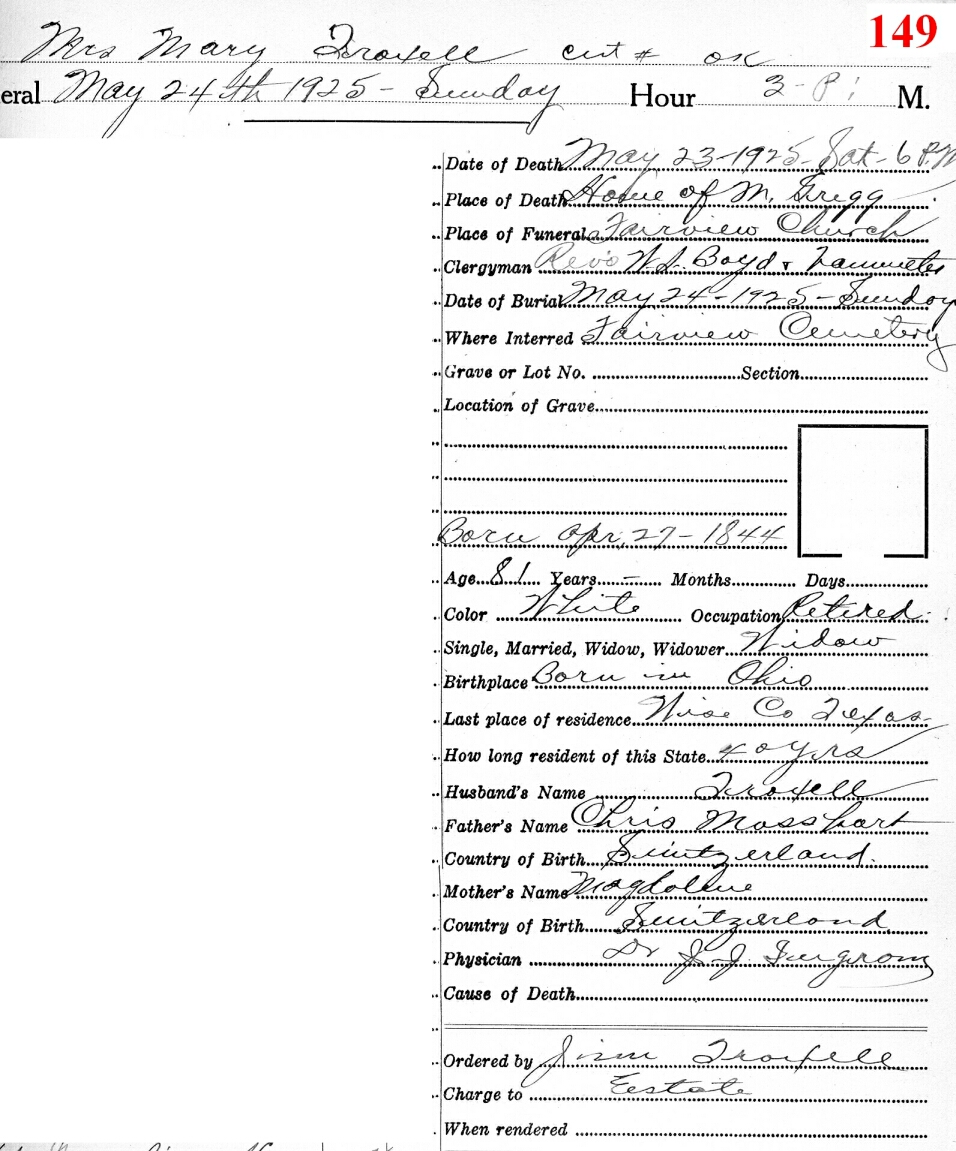 149
Mrs Mary Troxell cert # ok
eral May 24th 1925 - Sunday Hour 3 - P. M.
Date of Death May 23-1925- Sat- 6 P.M
Place of Death Home of M. Gregg
Place of Funeral Fairview Church
Clergyman Revs W.L. Boyd &
Date of Burial May 24-1925-Sunday
Where Interred Fairview Cemetery
Grave or Lot No. Section
Location of Grave
Born Apr, 27-1844
Age 81 Years - Months Days
Color White Occupation Retired
Single, Married, Widow, Widower Widow
Birthplace Born in Ohio
Last place of residence Wise Co Texas
How long resident of this State 40 yrs
Husband's Name Troxell
Father's Name Chris Mosshart
Country of Birth Switzerland.
Mother's Name Magdolene
Country of Birth Switzerland
Physician Dr J. J.
Cause of Death
Ordered by Jim Troxell
Charge to Eestate
When rendered